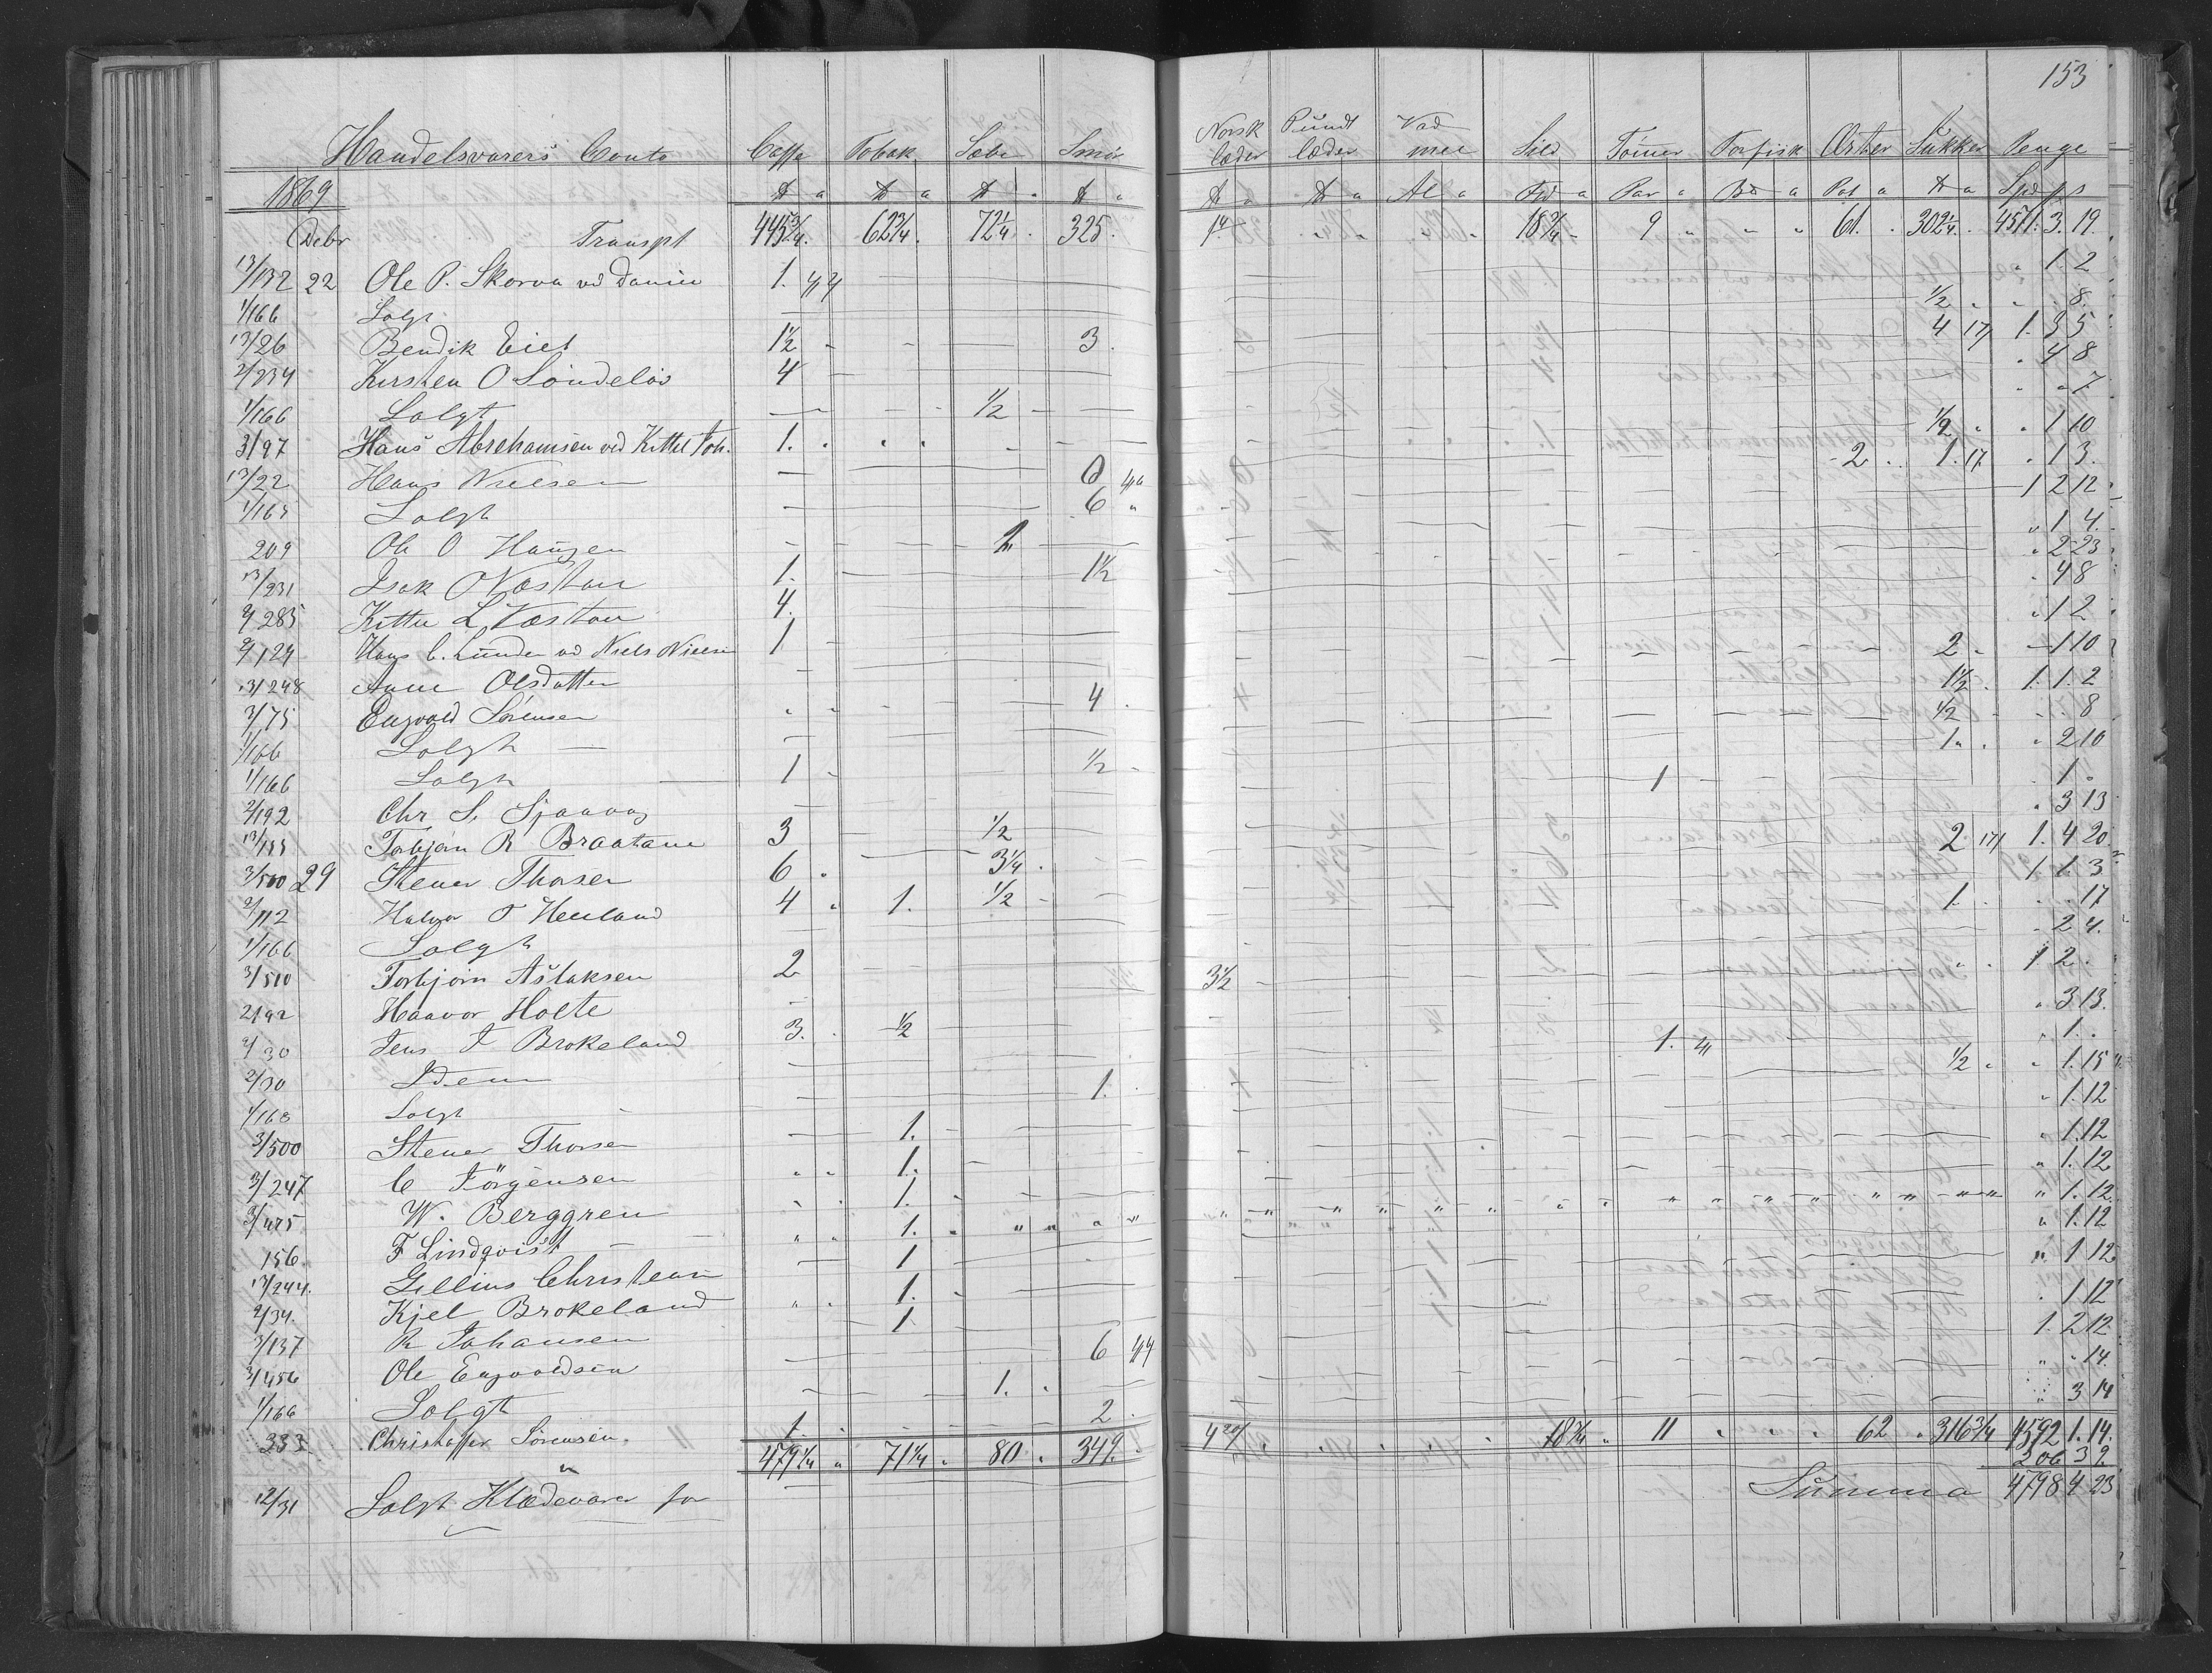 153
Handelsvarers Conto Caffe Tobak Sæbe Smør Norsk læder Pundt læder Vad mel Sild Tømer Torfisk Ærter Sukker Penge
1869 ℔ a ℔ a ℔ ℔ ℔ a ℔ a Al a Fd a Par a Bd a Pot a ℔ a Spd p s
Debr Transpt 445 3/4 62 3/4 72 1/4 325 14 18 3/4 9 61 302 1/4 4511. 3. 19.
13/132 22 Ole P. Skorva vd Daniel 1. 1. 2
1/166 Solgt 1/2 8
13/26 Bendik Eiet 1 1/2 3 4 17 1. 3 5
2/234 Kirsten O Søndeløs 4 4 8
1/166 Solgt 1/2 7
3/97 Hans Abrehamsen ved Kittel Toh. 1. 1/2 1 10
13/22 Hans Nielsen 2 1. 17 1 3.
1/165 Solgt 6 1 2 12
209 Ole O Haugen 2 1 4.
13/231 Isak O Næstan 1. 1 1/2 2 23
2/285 Kittel L Næstan 4. 4 8
2/124 Hans C. Lunden vd Niels Nielsen 1 1 2
13/248 Anne Olsdatter 2 1 10
3/75 Engvald Sørensen 4 1 1/2 1. 1. 2
1/166 Solgt 1/2 8
1/166 Solgt 1 1/2 1 2 10
2/192 Chr S. Sjaavag 1 1
13/155 Torbjørn R Braatane 3 1/2 3 13
3/500 29 Stener Thorsen 6 3/4 2 17 1. 4 20
2/112 Halvor T Heuland 4 1. 1/2 1 1. 3
1/166 Solgt 1 17
3/510 Torbjørn Aslaksen 2 2 4.
2/92 Haavor Holte 3 1/2 1 2
2/30 Jens T Brokeland 3. 1/2 3 13.
2/30 Idem 1. 1.
1/168 Solgt 1. 1/2 1. 15
3/500 Stener Thorsen 1. 1. 12
3/247 C Jörgensen 1. 1. 12
3/475 W. Berggren 1. 1. 12
156 F Lindqvist 1. 1. 12
13/244. Gellius Christensen 1 1. 12
2/34. Kjel Brokeland 1. 1 12
3/137 R Johansen 1 1 12
3/456 Ole Engvoldsen 6 1. 2 12
1/166 Solgt 1. 14.
233 Christoffer Sørensen. 1 2 3 14
479 1/4 71 1/4 80 349. 18 3/4 11 62 316 3/4 4592 1. 14.
12/31 Solgt Klædevarer for 206 3 9
Summa 4798 4 23